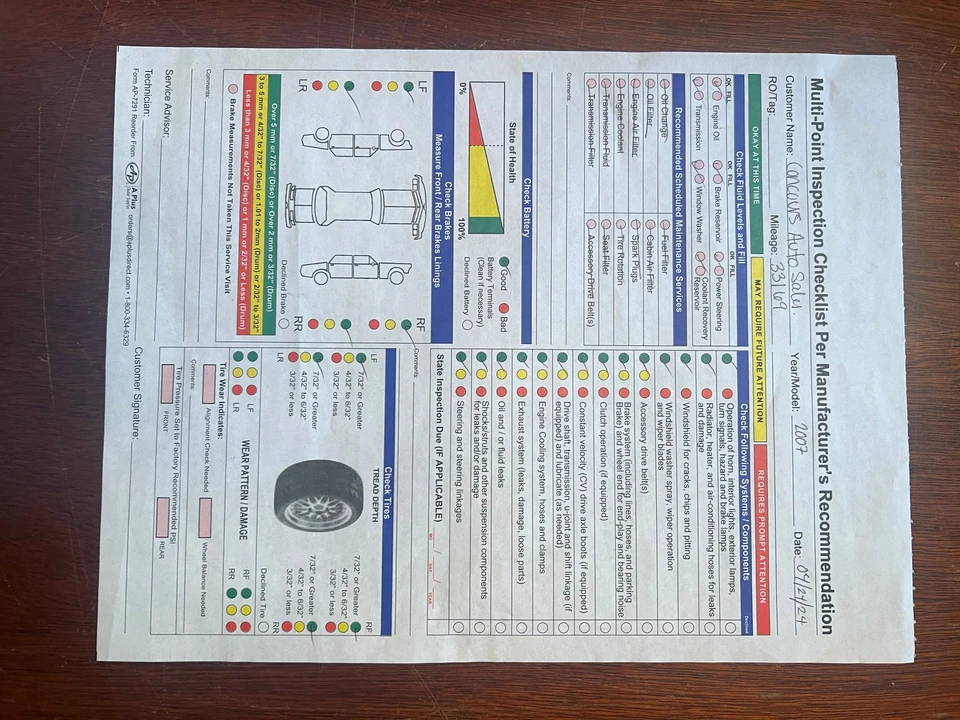 Multi-Point Inspection Checklist Per Manufacturer's Recommendation
Customer Name: Concours Auto Sales. Year/Model: 2007 Date: 09/24/24
RO/Tag: Mileage: 33169
OKAY AT THIS TIME MAY REQUIRE FUTURE ATTENTION REQUIRES PROMPT ATTENTION
Check Fluid Levels and Fill
OK FILL OK FILL OK FILL
Engine Oil Brake Reservoir Power Steering
Transmission Window Washer Coolant Recovery Reservoir
Recommended Scheduled Maintenance Services
Oil Change Fuel Filter
Oil Filter Cabin Air Filter
Engine Air Filter Spark Plugs
Engine Coolant Tire Rotation
Transmission Fluid Seal Filter
Transmission Filter Accessory Drive Belt(s)
Comments:
Check Battery
State of Health
0% 100%
Good Bad
Battery Terminals
(Clean if necessary)
Declined Battery
Check Brakes
Measure Front / Rear Brakes Linings
LF RF
LR RR
Declined Brake
Over 5 mm or 7/32" (Disc) or Over 2 mm or 3/32" (Drum)
3 to 5 mm or 4/32" to 7/32" (Disc) or 1.01 to 2mm (Drum) or 2/32" to 3/32"
Less than 3 mm or 4/32" (Disc) or 1 mm or 2/32" or Less (Drum)
Brake Measurements Not Taken This Service Visit
Comments:
Check Following Systems / Components
Declined
Operation of horn, interior lights, exterior lamps,
turn signals, hazard and brake lamps
Radiator, heater, and air-conditioning hoses for leaks
and damage
Windshield for cracks, chips and pitting
Windshield washer spray, wiper operation
and wiper blades
Accessory drive belt(s)
Brake system (including lines, hoses, and parking
Brake) and wheel end for end-play and bearing noise
Clutch operation (if equipped)
Constant velocity (CV) drive axle boots (if equipped)
Drive shaft, transmission, u-joint and shift linkage (if
equipped) and lubricate (as needed)
Engine Cooling system, hoses and clamps
Exhaust system (leaks, damage, loose parts)
Oil and / or fluid leaks
Shocks/struts and other suspension components
for leaks and/or damage
Steering and steering linkages
State Inspection Due (IF APPLICABLE) / /
MO DAY YEAR
Comments:
Check Tires
TREAD DEPTH
LF RF
7/32" or Greater 7/32" or Greater
4/32" to 6/32" 4/32" to 6/32"
3/32" or less 3/32" or less
7/32" or Greater 7/32" or Greater
4/32" to 6/32" 4/32" to 6/32"
3/32" or less 3/32" or less
LR RR
Declined Tire
WEAR PATTERN / DAMAGE
LF RF
LR RR
Tire Wear Indicates:
Alignment Check Needed Wheel Balance Needed
Comments:
Tire Pressure Set to Factory Recommended PSI
FRONT REAR
Service Advisor: Customer Signature:
Technician:
Form AP-7291 Reorder From: A Plus orders@aplusdirect.com • 1-800-334-6329